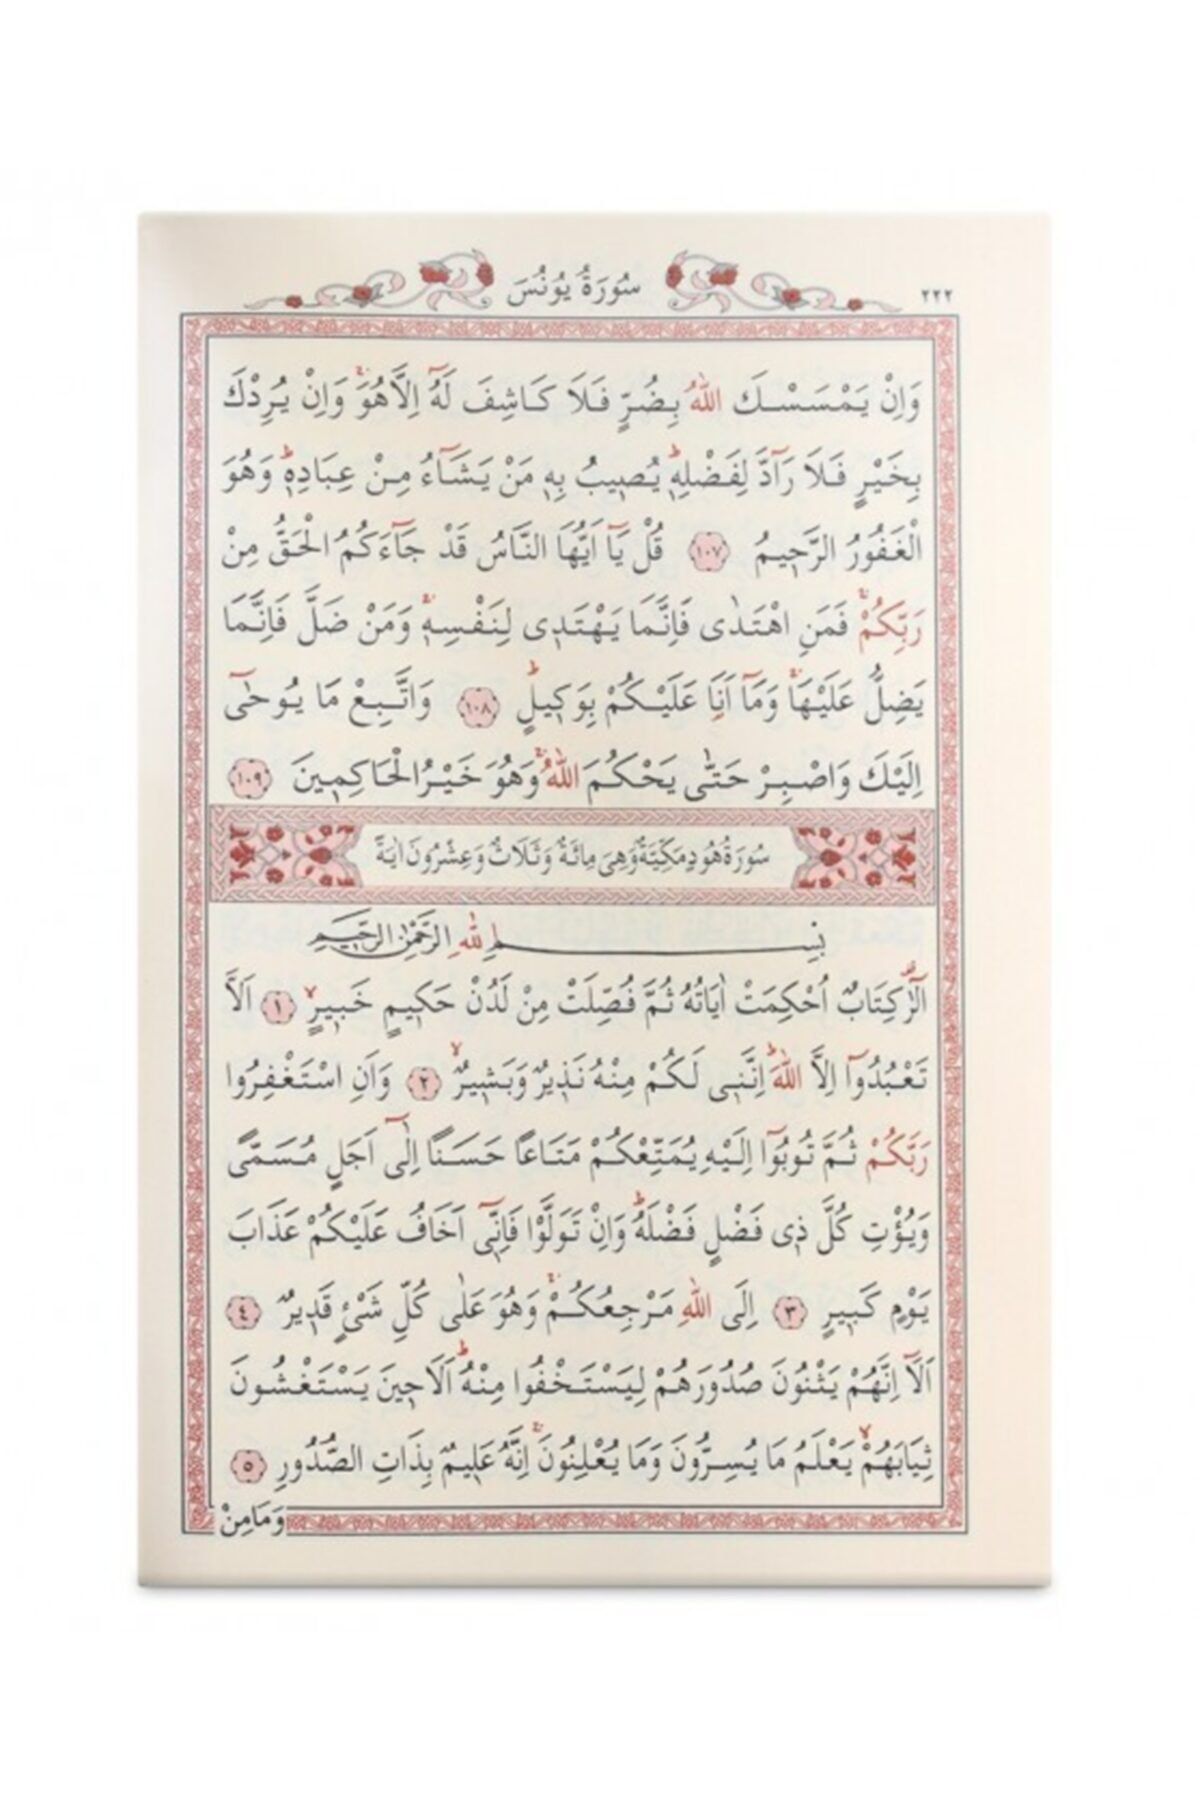 ٢٢٢
سُورَةُ يُونُسَ
وَاِنْ يَمْسَسْكَ اللّٰهُ بِضُرٍّ فَلَا كَاشِفَ لَهُٓ اِلَّا هُوَۚ وَاِنْ يُرِدْكَ
بِخَيْرٍ فَلَا رَٓادَّ لِفَضْلِه۪ۜ يُص۪يبُ بِه۪ مَنْ يَشَٓاءُ مِنْ عِبَادِه۪ۜ وَهُوَ
الْغَفُورُ الرَّح۪يمُ ﴿١٠٧﴾ قُلْ يَٓا اَيُّهَا النَّاسُ قَدْ جَٓاءَكُمُ الْحَقُّ مِنْ
رَبِّكُمْۚ فَمَنِ اهْتَدٰى فَاِنَّمَا يَهْتَد۪ى لِنَفْسِه۪ۚ وَمَنْ ضَلَّ فَاِنَّمَا
يَضِلُّ عَلَيْهَاۚ وَمَٓا اَنَا عَلَيْكُمْ بِوَك۪يلٍۜ ﴿١٠٨﴾ وَاتَّبِعْ مَا يُوحٰٓى
اِلَيْكَ وَاصْبِرْ حَتّٰى يَحْكُمَ اللّٰهُۚ وَهُوَ خَيْرُ الْحَاكِم۪ينَ ﴿١٠٩﴾
سُورَةُ هُودٍ مَكِّيَّةٌ وَهِىَ مِائَةٌ وَثَلَاثٌ وَعِشْرُونَ اٰيَةً
بِسْمِ اللّٰهِ الرَّحْمٰنِ الرَّح۪يمِ
الٓرٰ۠ كِتَابٌ اُحْكِمَتْ اٰيَاتُهُ ثُمَّ فُصِّلَتْ مِنْ لَدُنْ حَك۪يمٍ خَب۪يرٍۙ ﴿١﴾ اَلَّا
تَعْبُدُٓوا اِلَّا اللّٰهَۜ اِنَّن۪ى لَكُمْ مِنْهُ نَذ۪يرٌ وَبَش۪يرٌۙ ﴿٢﴾ وَاَنِ اسْتَغْفِرُوا
رَبَّكُمْ ثُمَّ تُوبُٓوا اِلَيْهِ يُمَتِّعْكُمْ مَتَاعًا حَسَنًا اِلٰٓى اَجَلٍ مُسَمًّى
وَيُؤْتِ كُلَّ ذ۪ى فَضْلٍ فَضْلَهُۜ وَاِنْ تَوَلَّوْا فَاِنّ۪ٓى اَخَافُ عَلَيْكُمْ عَذَابَ
يَوْمٍ كَب۪يرٍ ﴿٣﴾ اِلَى اللّٰهِ مَرْجِعُكُمْۚ وَهُوَ عَلٰى كُلِّ شَىْءٍ قَد۪يرٌ ﴿٤﴾
اَلَٓا اِنَّهُمْ يَثْنُونَ صُدُورَهُمْ لِيَسْتَخْفُوا مِنْهُۜ اَلَا ح۪ينَ يَسْتَغْشُونَ
ثِيَابَهُمْۙ يَعْلَمُ مَا يُسِرُّونَ وَمَا يُعْلِنُونَۚ اِنَّهُ عَل۪يمٌ بِذَاتِ الصُّدُورِ ﴿٥﴾
وَمَا مِنْ